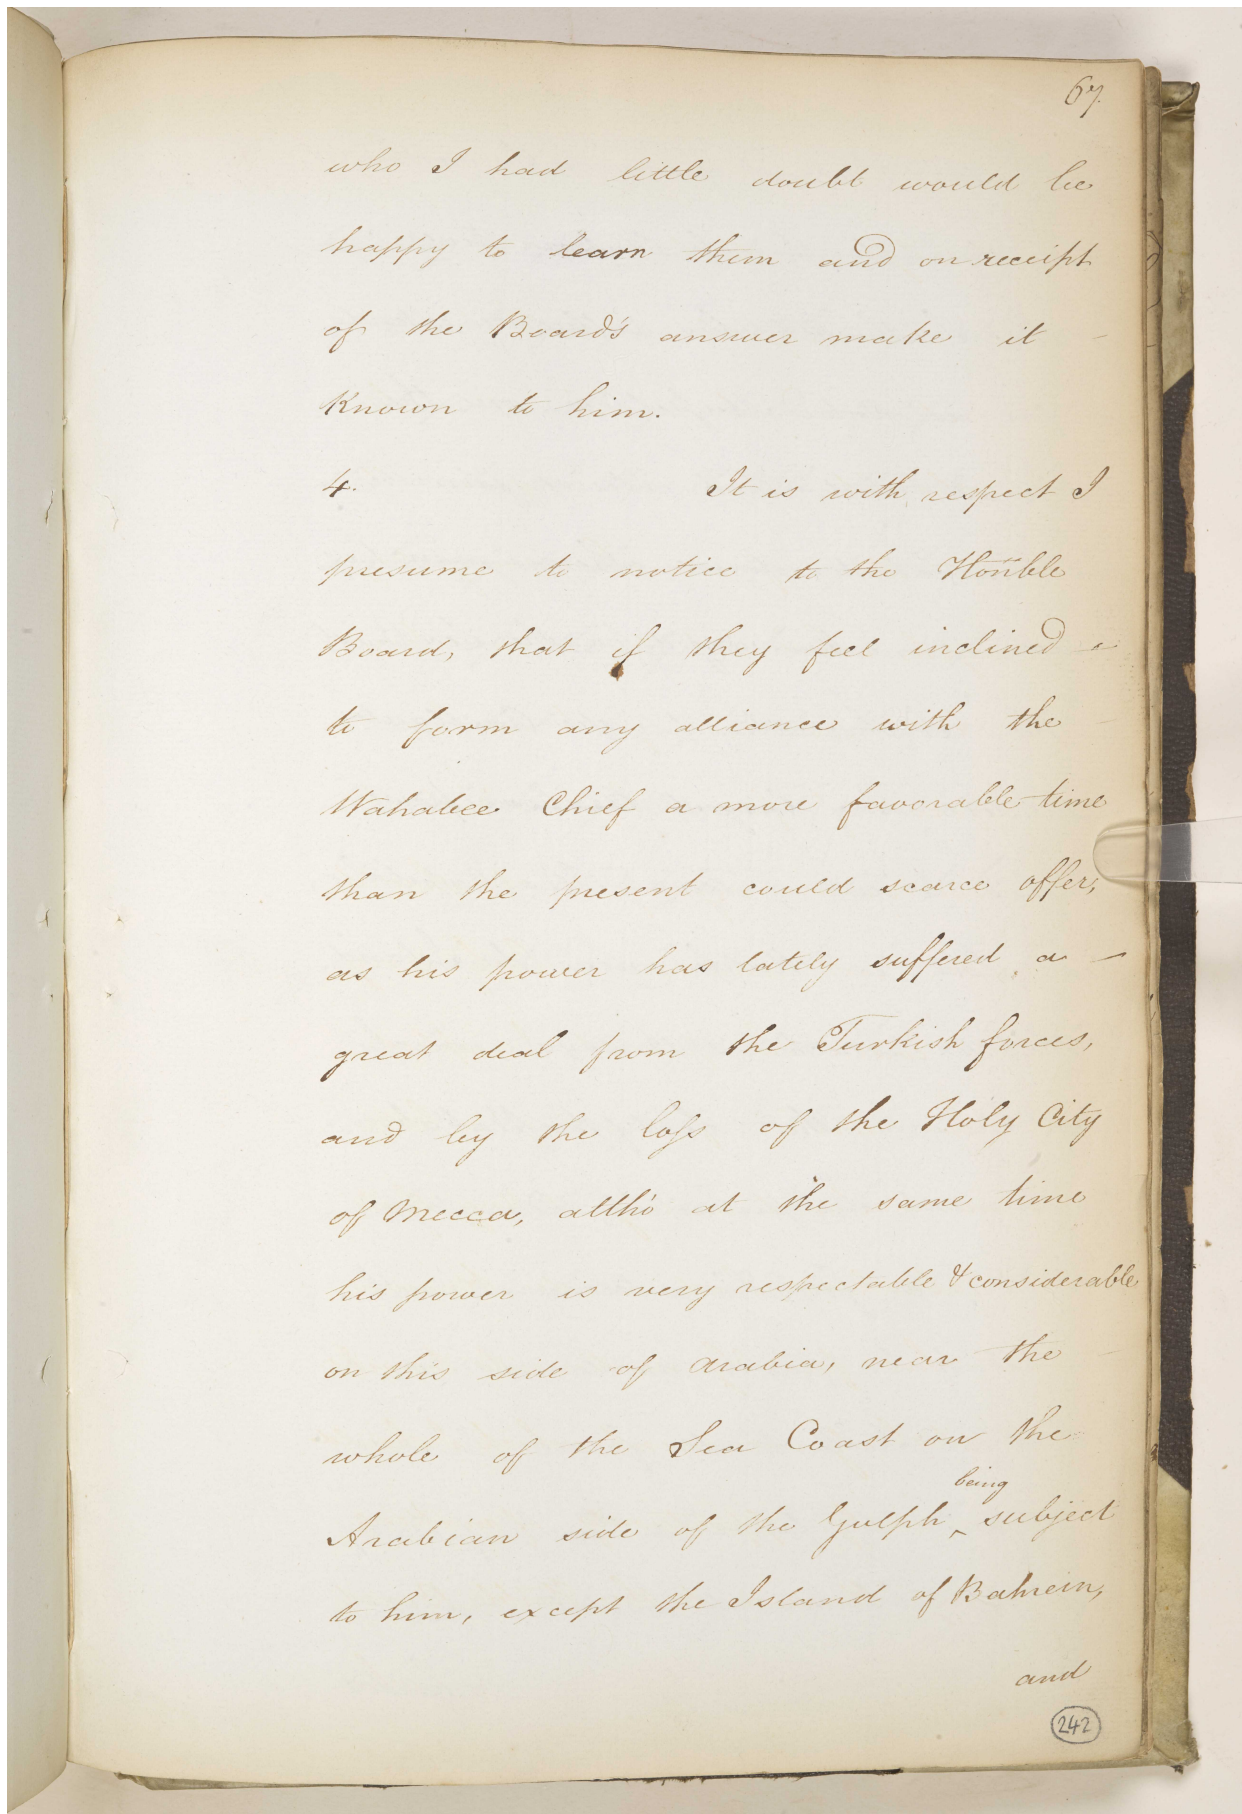 67.
who I had little doubt would be
happy to learn them and on receipt
of the Board's answer make it -
Known to him.
4. It is with respect I
presume to notice to the Honble
Board, that if they feel inclined -
to form any alliance with the -
Wahabee Chief a more favorable time
than the present could scarce offer,
as his power has lately suffered a -
great deal from the Turkish forces,
and by the loss of the Holy City
of Mecca, altho' at the same time
his power is very respectable & considerable
on this side of Arabia, near the -
whole of the Sea Coast on the
being
Arabian side of the Gulph ‸ subject
to him, except the Island of Bahrein,
and
242